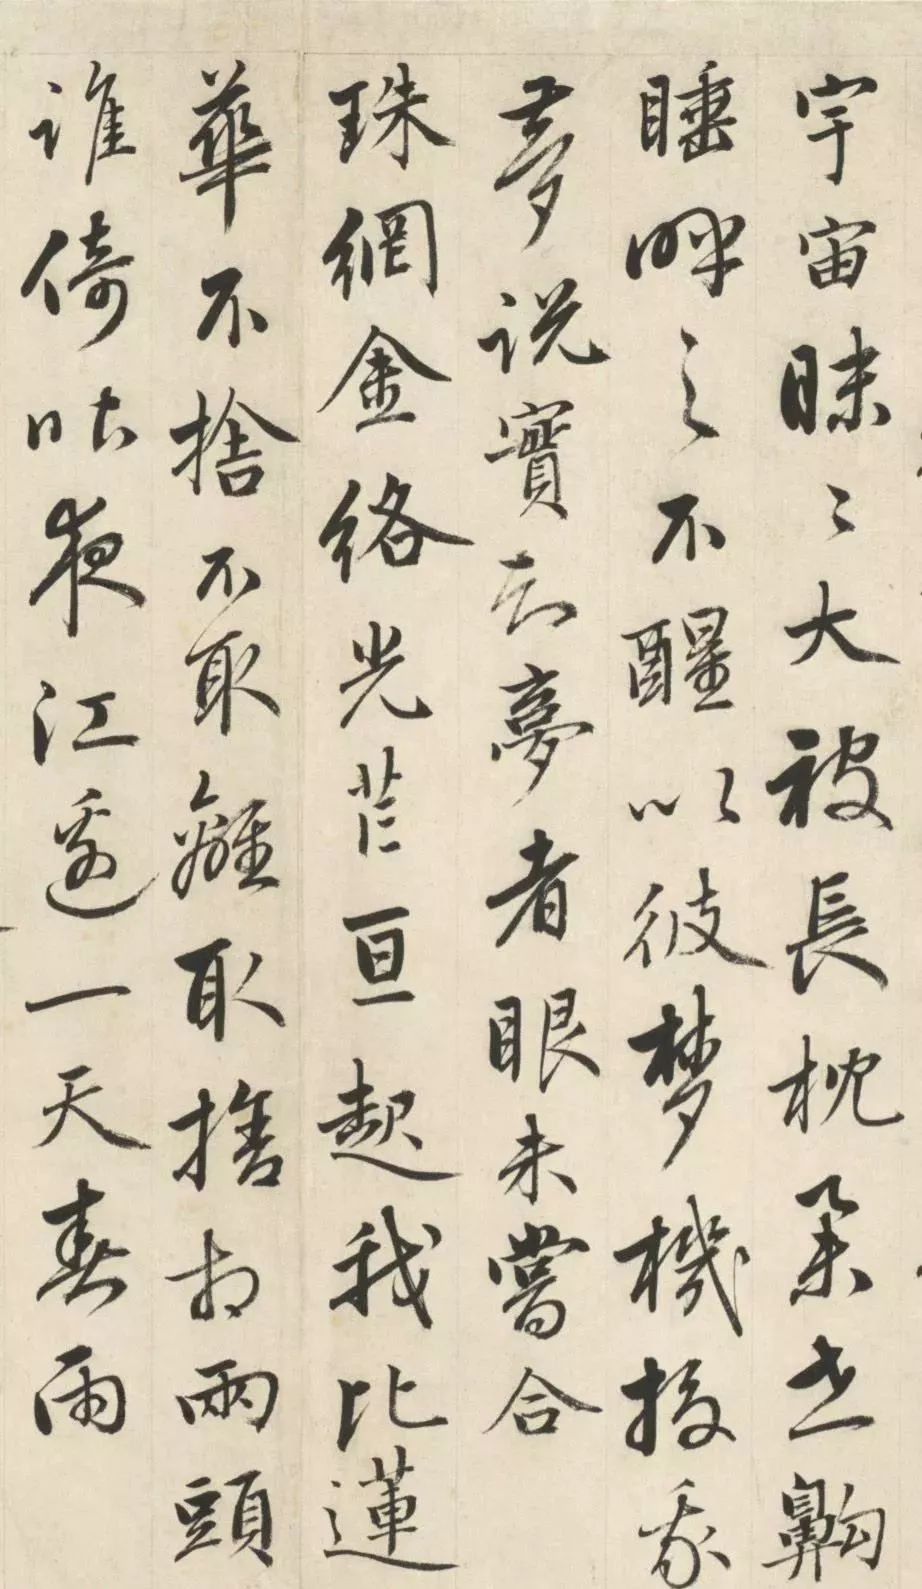 宇宙昧〻大被長枕世齁
睡呼之不醒以彼夢機投我
夢説實无夢者眼未嘗合
珠網金絡光芒亘起我比蓮
華不捨不取離取捨相兩頭
誰倚咄夜江邊一天春雨